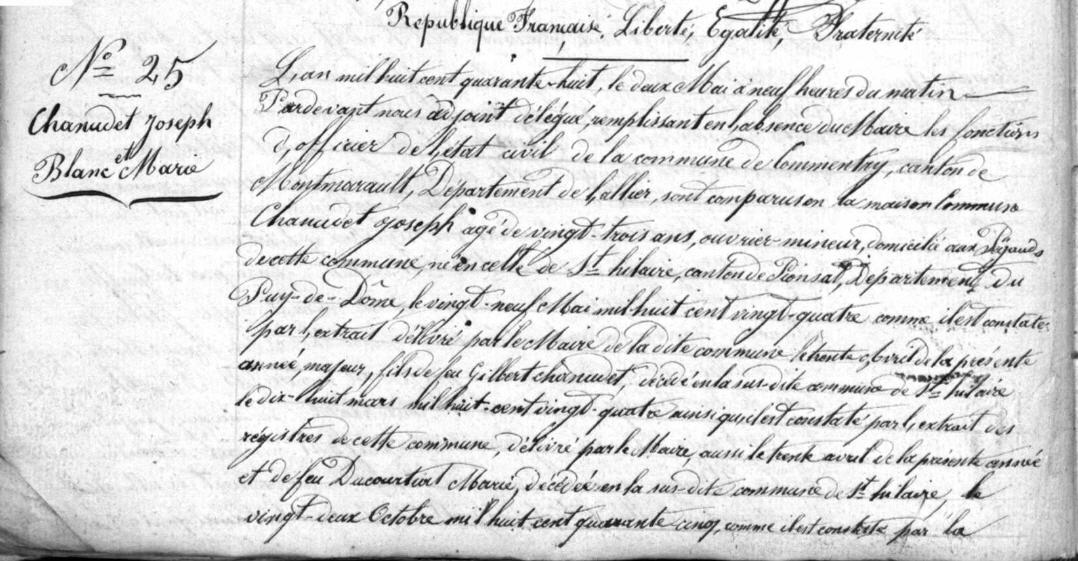 République Française, Liberté, Egalité, Fraternité
Nº 25
Chanudet Joseph
et
Blanc Marie
L,an mil huit cent quarante-huit, le deux Mai à neuf heures du matin
Pardevant nous adjoint délégué, remplissant en l,absence du Maire les fonctions
d,officier de l,état civil de la commune de Commentry, canton de
Montmarault, Département de l,allier, sont comparus en la maison Commune
Chanudet Joseph agé de vingt-trois ans, ouvrier-mineur, domicilié aux
de cette commune, né en celle de St hilaire, canton de Pionsat, Département du
Puy-de-Dôme, le vingt-neuf Mai mil-huit cent vingt-quatre comme il est constaté
par l,extrait délivré par le Maire de la dite commune le trente Avril de la présente
année, majeur, fils de feu Gilbert Chanudet, décédé en la sus-dite commune de St hilaire
le dix-huit mars mil huit-cent vingt-quatre ainsi qu,il est constaté par l,extrait des
régistres de cette commune, délivré par le Maire, aussi le trente avril de la présente année
et de feu Ducourtiat Marie, décédée en la sus-dite commune de St hilaire, le
vingt-deux Octobre mil huit-cent quarante cinq, comme il est constaté par la